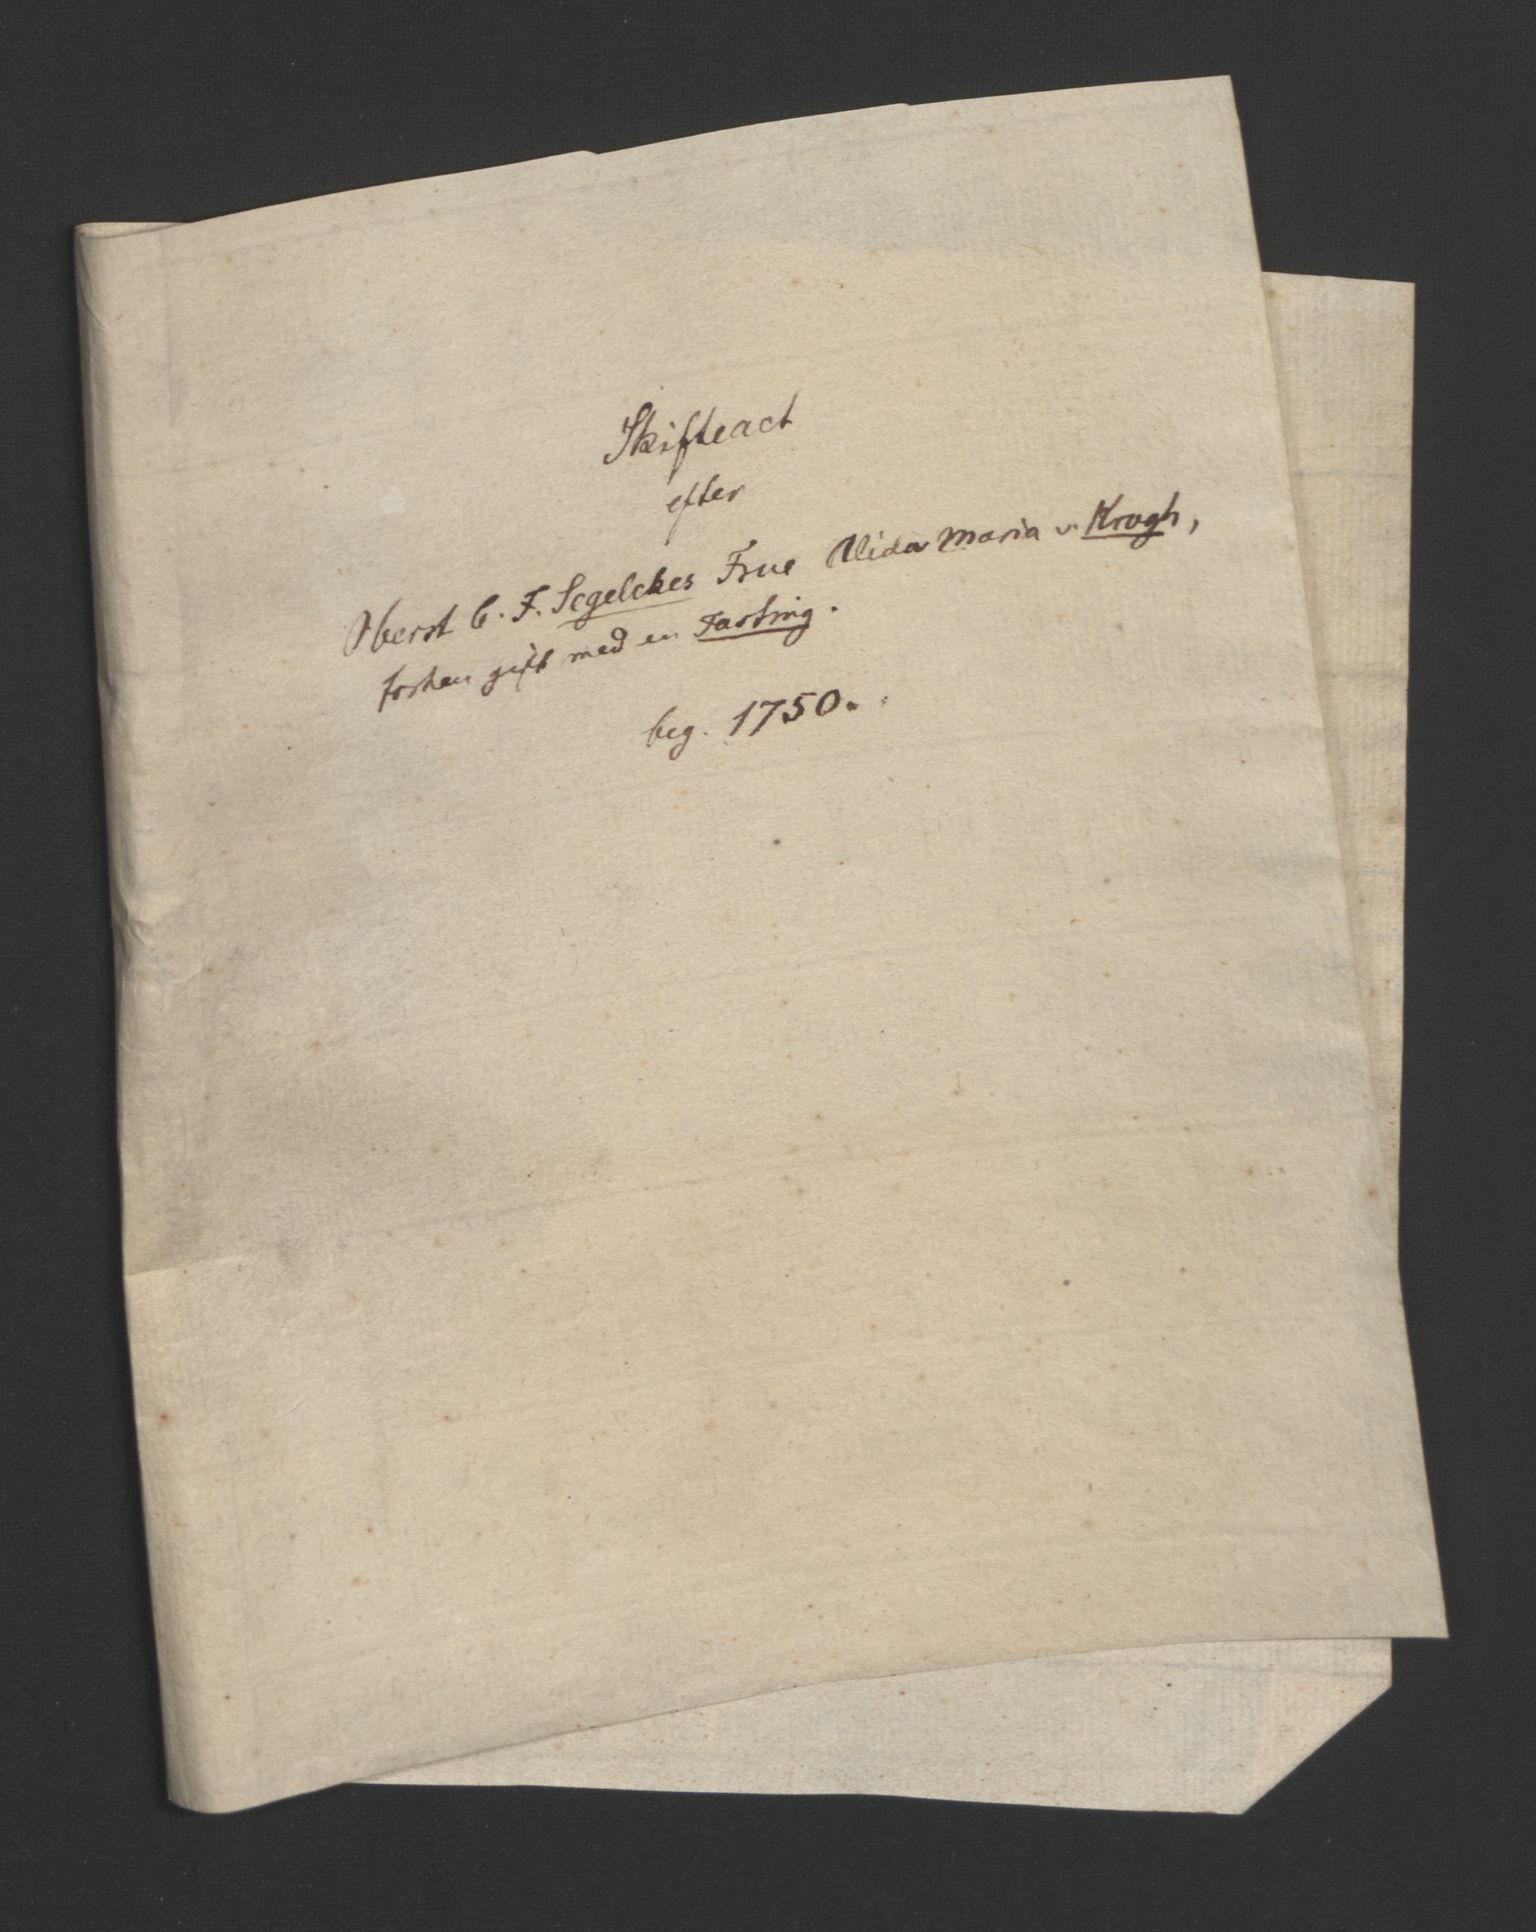 Skifteact
efter
Oberst C. F. Segelckes Frue Alida Maria v. Krogh,
forhen gift med en Fasting.
beg. 1750.